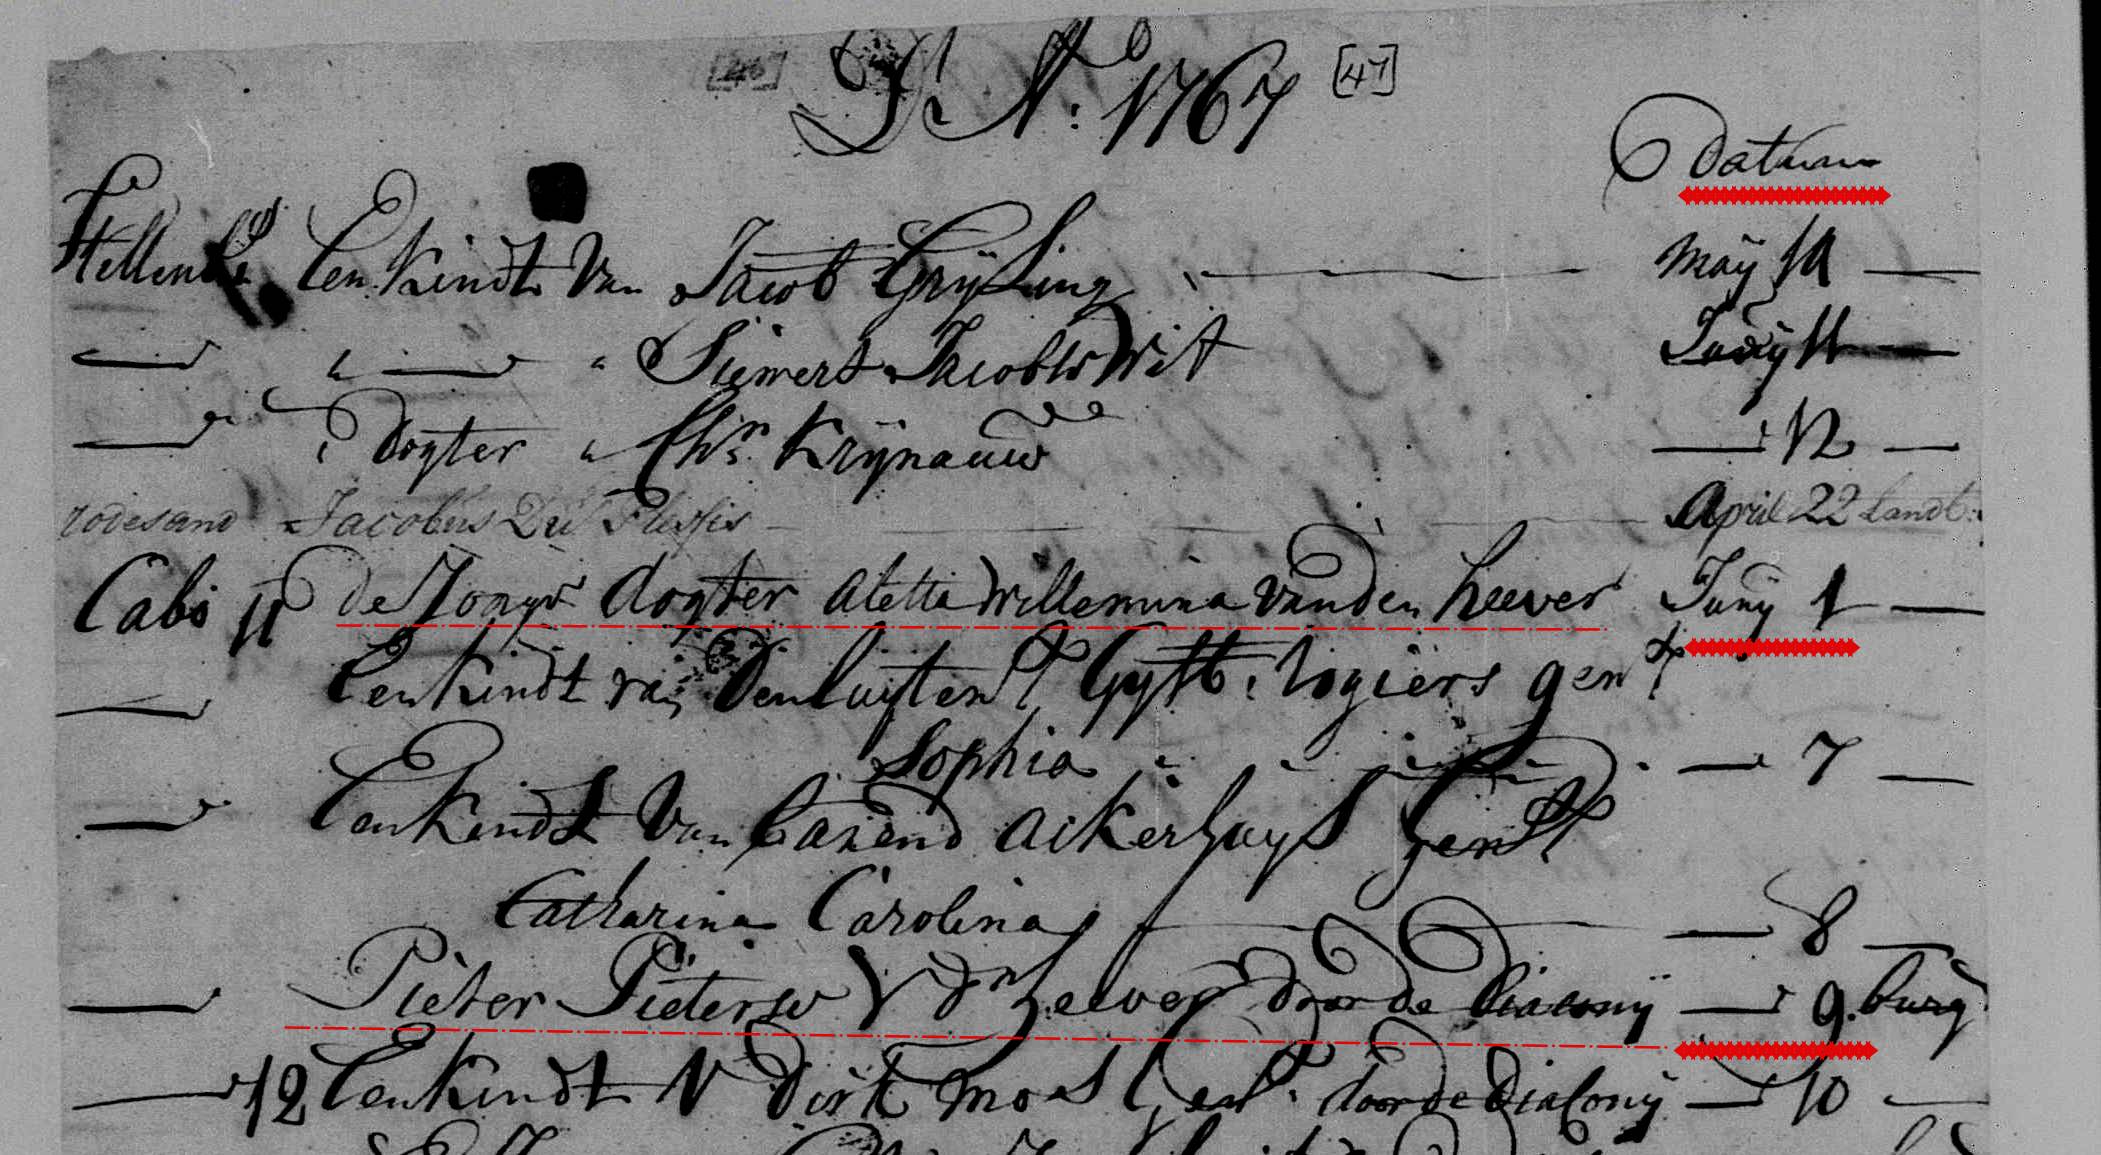 Aº 1767 [47]
Datum
Stellenb: Een Kindt van Jacob Grÿling — maÿ 19 —
— " — " Siewert Jacobsw Wit Junÿ 11 —
— " Dogter " Chr: Krÿnauw — 12 —
rodesand Jacobus Du Plessis — April 22 landt:
Cabo 11 de Jonge dogter aletta willemina vanden heever Junÿ 1 —
— Een kindt van Den luÿtent Gÿsb: rogiers gent
Sophia — 7 —
— Een kindt van barend ackerhuÿs gent
Catharina Carolina — 8 —
— Pieter Pietersw V dn heever door de diaconÿ — 9. burg
— 12 Een kindt V dirk mos gent. door de diaconÿ — 10 —